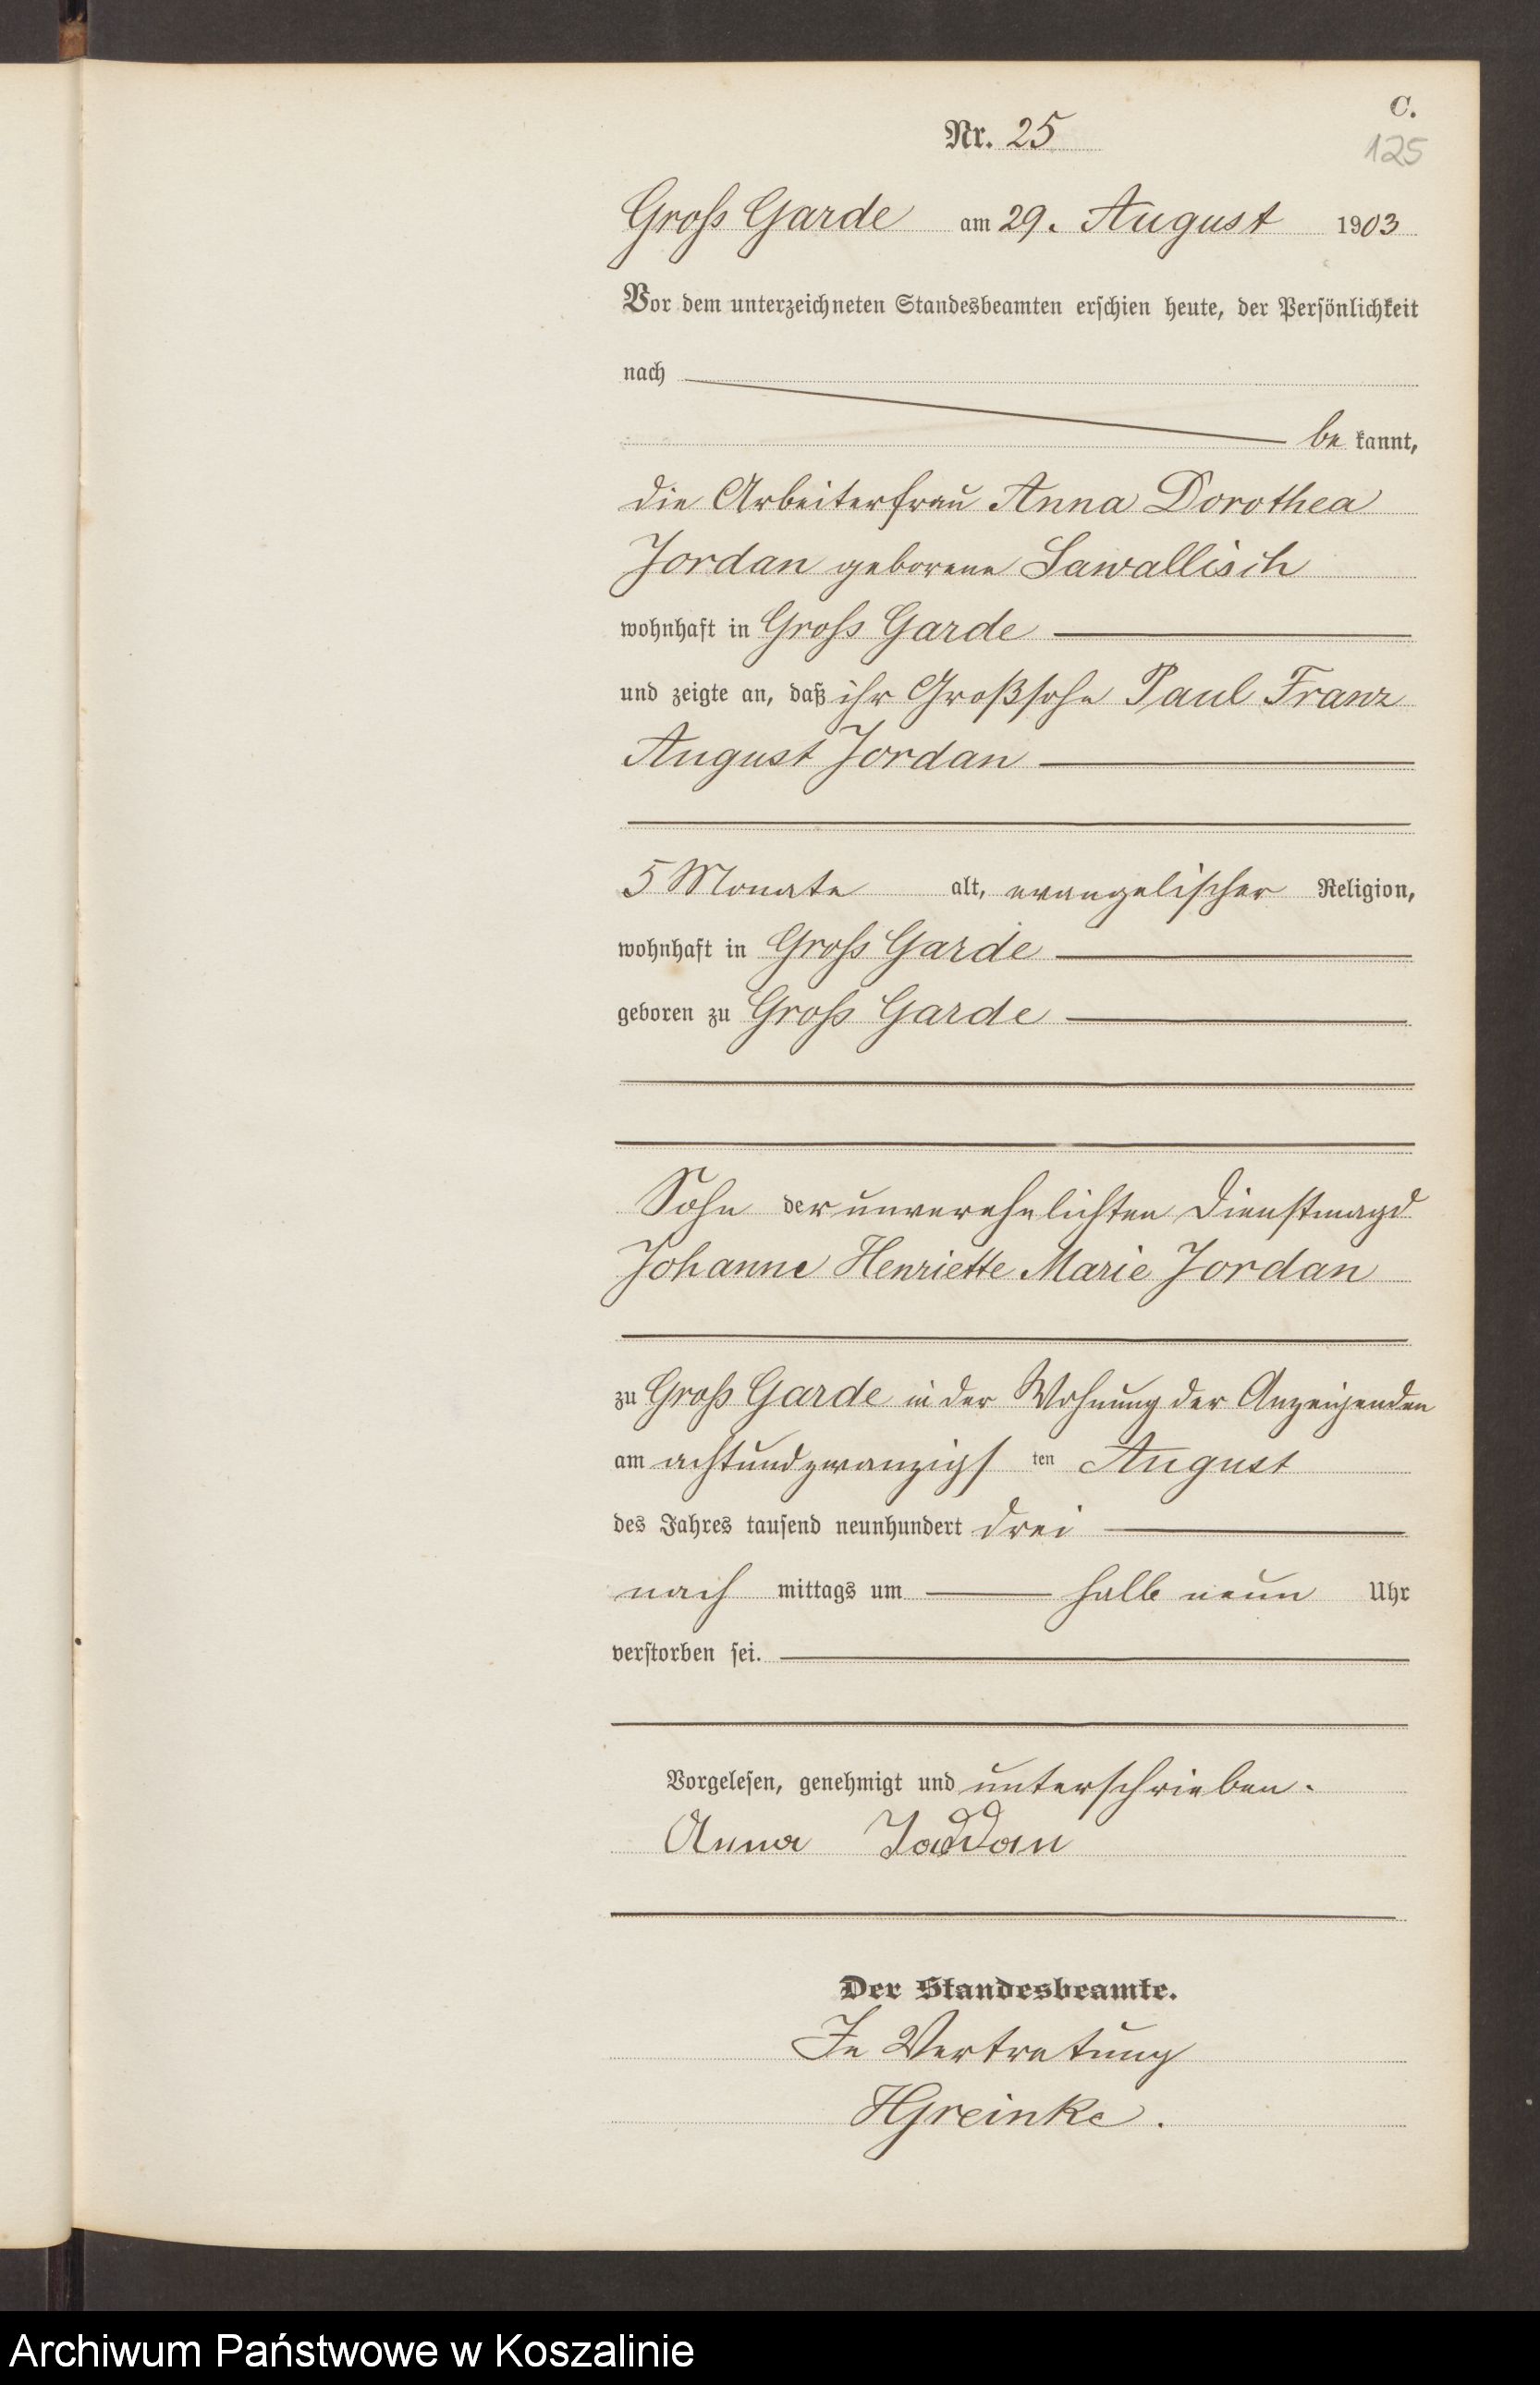 C.
Nr. 25
125
Gross Garde am 29. August 1903
Vor dem unterzeichneten Standesbeamten erschien heute, der Persönlichkeit
nach
be kannt,
die Arbeiterfrau Anna Dorothea
Jordan geborene Sawallisch
wohnhaft in Gross Garde
und zeigte an, daß ihr Großsohn Paul Franz
August Jordan
5 Monate alt, evangelischer Religion,
wohnhaft in Gross Garde
geboren zu Gross Garde
Sohn der unverehelichten Dienstmagd
Johanne Henriette Marie Jordan
zu Gross Garde in der Wohnung der Anzeigenden
am achtundzwanzigs ten August
des Jahres tausend neunhundert drei
nach mittags um halb neun Uhr
verstorben sei.
Vorgelesen, genehmigt und unterschrieben.
Anna Jordan
Der Standesbeamte.
In Vertretung
HGreinke.
Archiwum Państwowe w Koszalinie